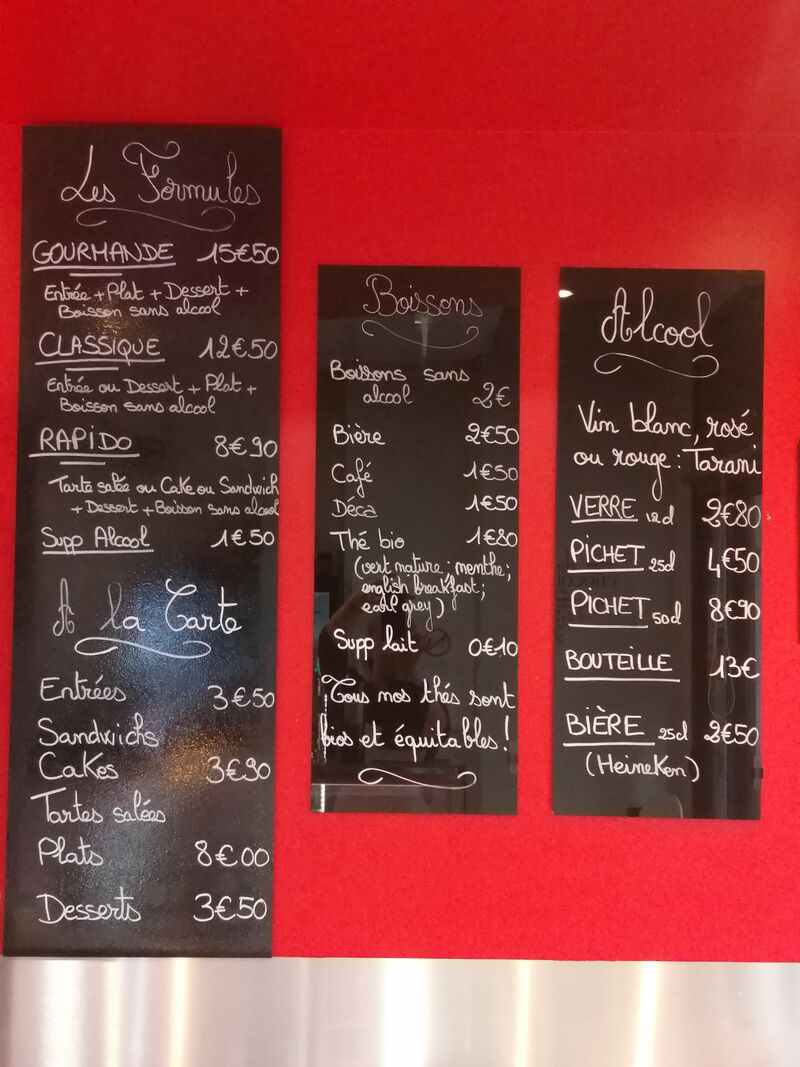 Les Formules
GOURMANDE 15€50
Entrée + Plat + Dessert +
Boisson sans alcool
CLASSIQUE 12€50
Entrée ou Dessert + Plat +
Boisson sans alcool
RAPIDO 8€90
Tarte salée ou Cake ou Sandwich
+ Dessert + Boisson sans alcool
Supp Alcool 1€50
A la Carte
Entrées 3€50
Sandwichs
Cakes 3€90
Tartes salées
Plats 8€00
Desserts 3€50
Boissons
Boissons sans
alcool 2€
Bière 2€50
Café 1€50
Déca 1€50
Thé bio 1€80
(vert nature ; menthe ;
english breakfast ;
earl grey)
Supp lait 0€10
Tous nos thés sont
bios et équitables !
Alcool
Vin blanc, rosé
ou rouge : Tarani
VERRE 12cl 2€80
PICHET 25cl 4€50
PICHET 50cl 8€90
BOUTEILLE 13€
BIÈRE 25cl 2€50
(Heineken)